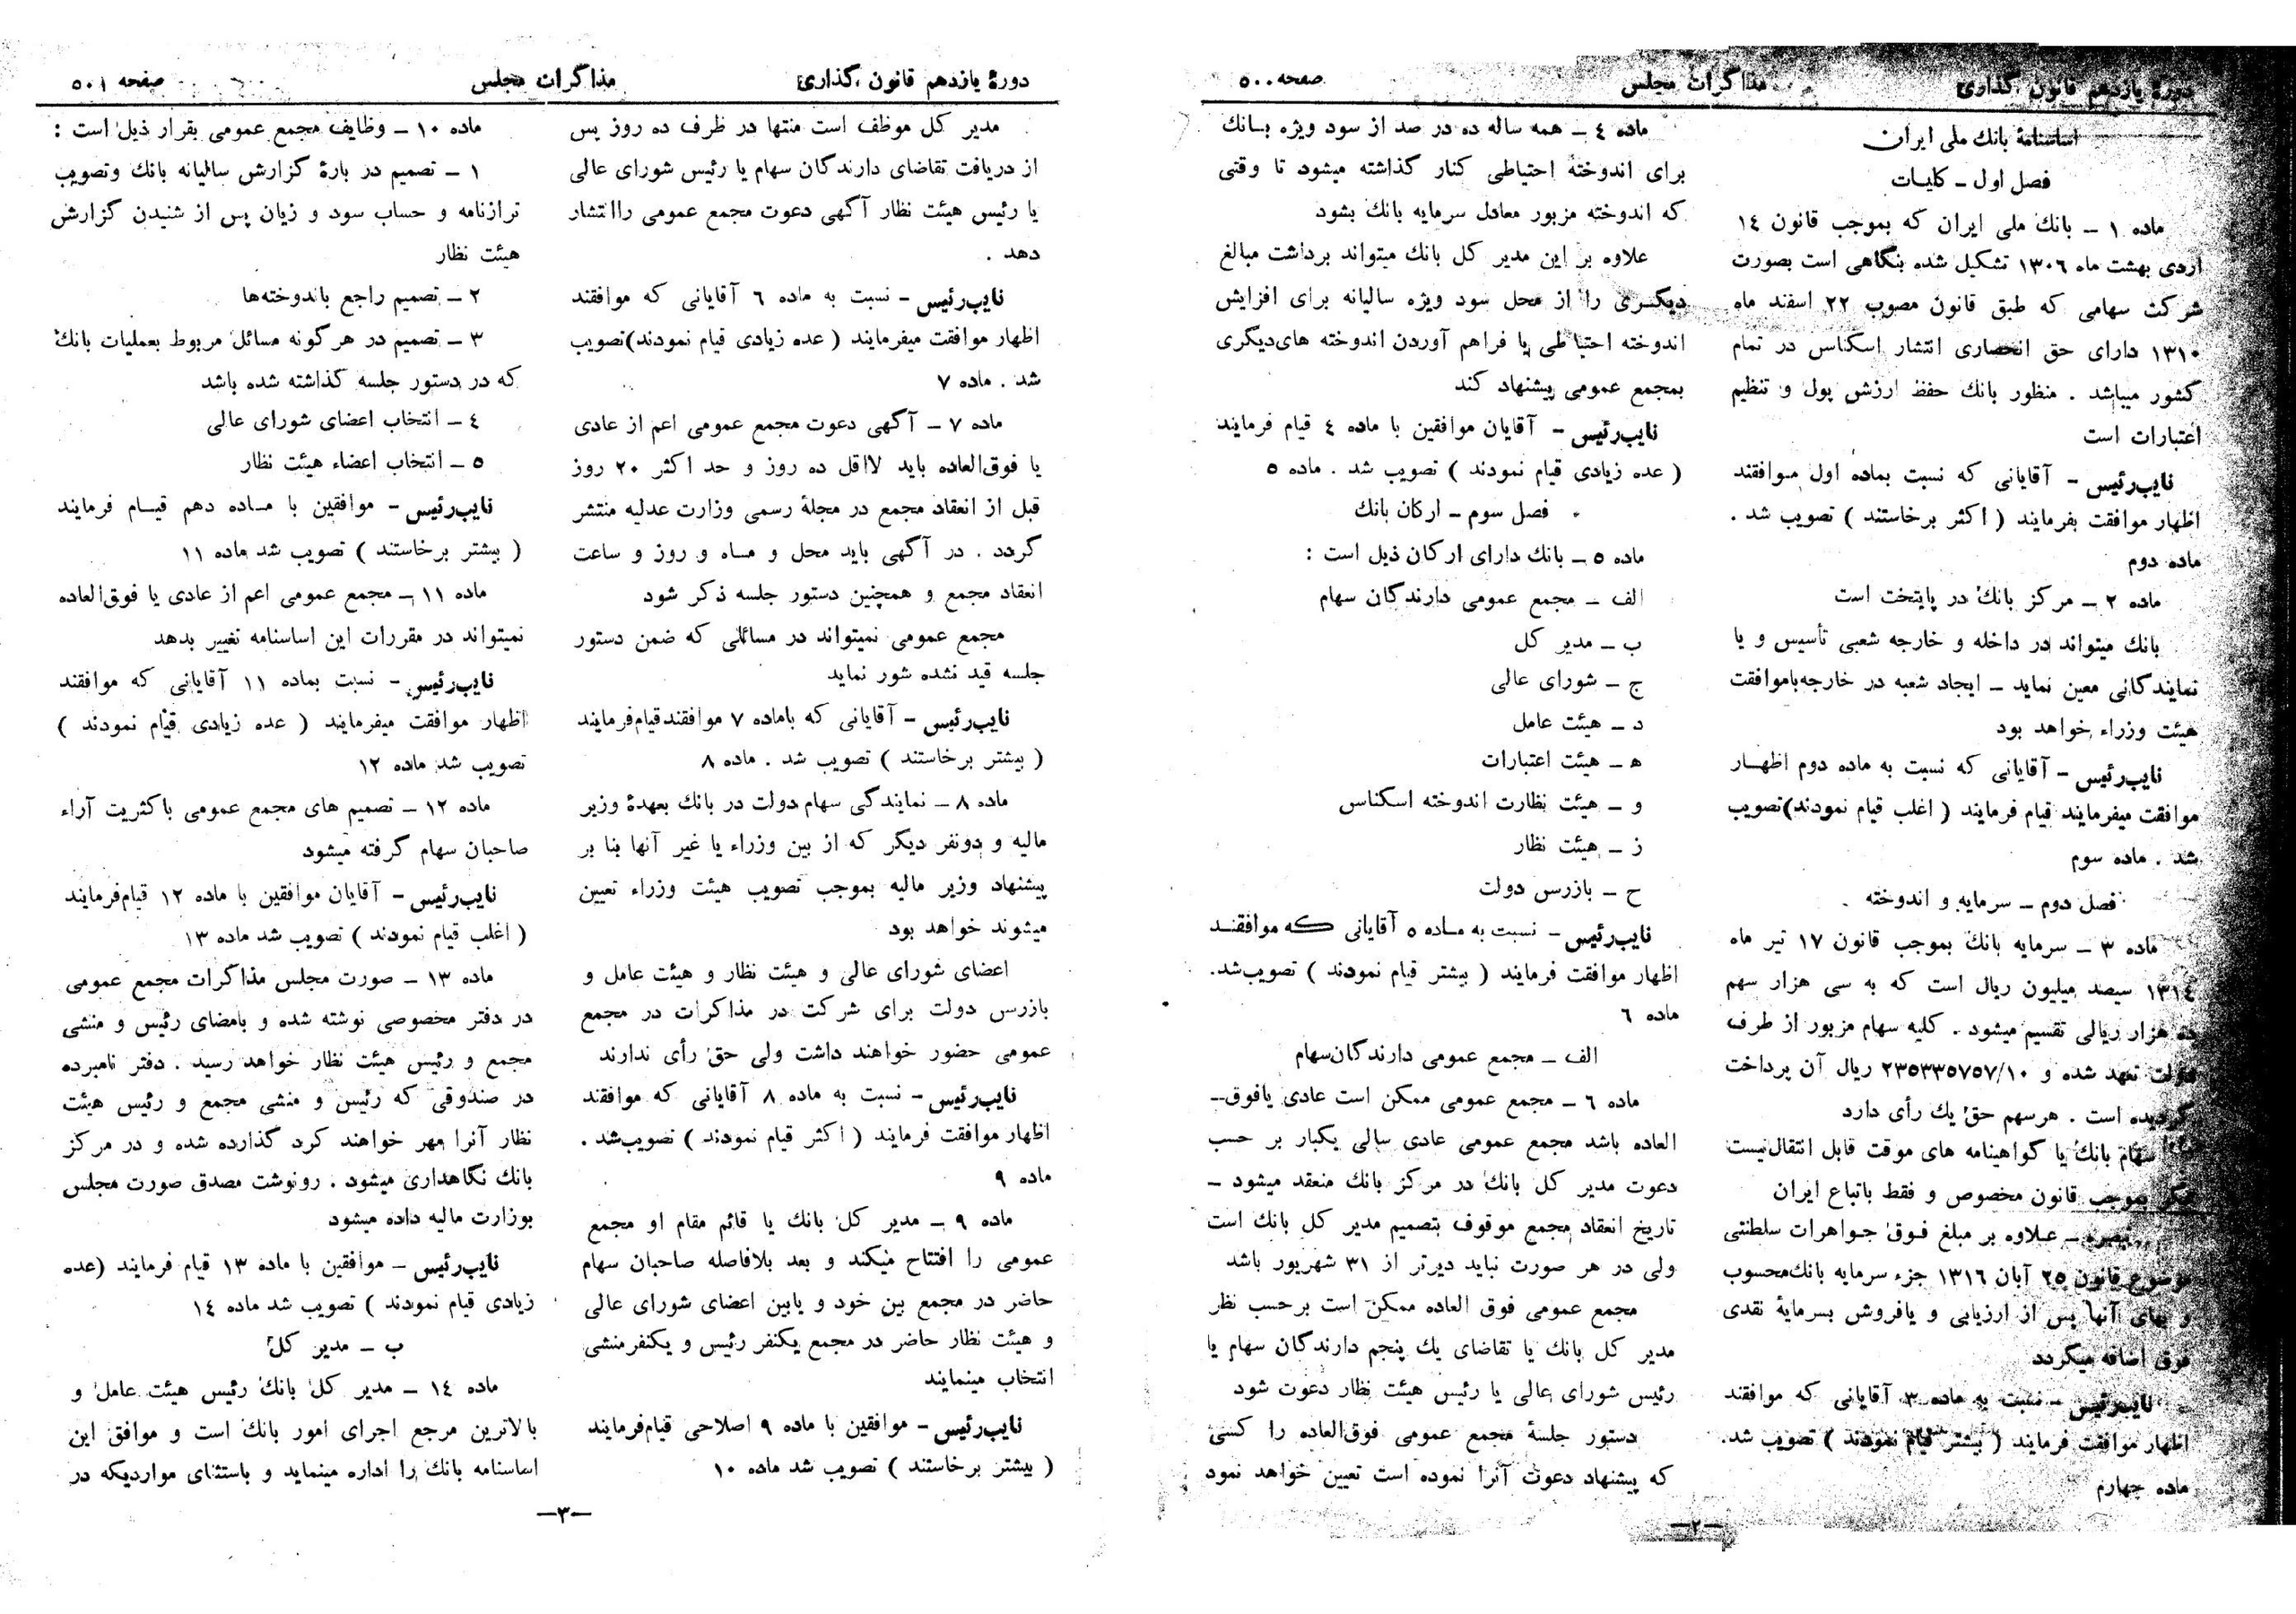 دورهٔ یازدهم قانون گذاری
مذاکرات مجلس
صفحه ۵۰۰
اساسنامهٔ بانک ملی ایران
فصل اول ـ کلیات
ماده ۱ ـ بانک ملی ایران که بموجب قانون ۱۴
اردی بهشت ماه ۱۳۰۶ تشکیل شده بنگاهی است بصورت
شرکت سهامی که طبق قانون مصوب ۲۲ اسفند ماه
۱۳۱۰ دارای حق انحصاری انتشار اسکناس در تمام
کشور میباشد . منظور بانک حفظ ارزش پول و تنظیم
اعتبارات است
نایب‌رئیس - آقایانی که نسبت بماده اول موافقند
اظهار موافقت بفرمایند ( اکثر برخاستند ) تصویب شد .
ماده دوم
ماده ۲ ـ مرکز بانک در پایتخت است
بانک میتواند در داخله و خارجه شعبی تأسیس و یا
نمایندگانی معین نماید ـ ایجاد شعبه در خارجه باموافقت
هیئت وزراء خواهد بود
نایب‌رئیس - آقایانی که نسبت به ماده دوم اظهار
موافقت میفرمایند قیام فرمایند ( اغلب قیام نمودند)تصویب
شد . ماده سوم
فصل دوم ـ سرمایه و اندوخته
ماده ۳ ـ سرمایه بانک بموجب قانون ۱۷ تیر ماه
۱۳۱۴ سیصد میلیون ریال است که به سی هزار سهم
ده هزار ریالی تقسیم میشود . کلیه سهام مزبور از طرف
دولت تعهد شده و ۲۳۵۳۳۵۷۵۷/۱۰ ریال آن پرداخت
گردیده است . هرسهم حق یک رأی دارد
سهام بانک یا گواهینامه های موقت قابل انتقال‌نیست
مگر بموجب قانون مخصوص و فقط باتباع ایران
تبصره ـ علاوه بر مبلغ فوق جواهرات سلطنتی
موضوع قانون ۲۵ آبان ۱۳۱۶ جزء سرمایه بانک‌محسوب
و بهای آنها پس از ارزیابی و یافروش بسرمایهٔ نقدی
فوق اضافه میگردد
نایب‌رئیس - نسبت به ماده ۳ آقایانی که موافقند
اظهار موافقت فرمایند ( بیشتر قیام نمودند ) تصویب شد.
ماده چهارم
ماده ۴ ـ همه ساله ده در صد از سود ویژه بانک
برای اندوخته احتیاطی کنار گذاشته میشود تا وقتی
که اندوخته مزبور معادل سرمایه بانک بشود
علاوه بر این مدیر کل بانک میتواند برداشت مبالغ
دیگری را از محل سود ویژه سالیانه برای افزایش
اندوخته احتیاطی یا فراهم آوردن اندوخته های‌دیگری
بمجمع عمومی پیشنهاد کند
نایب‌رئیس - آقایان موافقین با ماده ۴ قیام فرمایند
( عده زیادی قیام نمودند ) تصویب شد . ماده ۵
فصل سوم ـ ارکان بانک
ماده ۵ ـ بانک دارای ارکان ذیل است :
الف ـ مجمع عمومی دارندگان سهام
ب ـ مدیر کل
ج ـ شورای عالی
د ـ هیئت عامل
ه ـ هیئت اعتبارات
و ـ هیئت نظارت اندوخته اسکناس
ز ـ هیئت نظار
ح ـ بازرس دولت
نایب‌رئیس - نسبت به ماده ۵ آقایانی که موافقند
اظهار موافقت فرمایند ( بیشتر قیام نمودند ) تصویب‌شد.
ماده ۶
الف ـ مجمع عمومی دارندگان‌سهام
ماده ۶ ـ مجمع عمومی ممکن است عادی یافوق‌ـ
العاده باشد مجمع عمومی عادی سالی یکبار بر حسب
دعوت مدیر کل بانک در مرکز بانک منعقد میشود ـ
تاریخ انعقاد مجمع موقوف بتصمیم مدیر کل بانک است
ولی در هر صورت نباید دیرتر از ۳۱ شهریور باشد
مجمع عمومی فوق العاده ممکن است برحسب نظر
مدیر کل بانک یا تقاضای یک پنجم دارندگان سهام یا
رئیس شورای عالی یا رئیس هیئت نظار دعوت شود
دستور جلسهٔ مجمع عمومی فوق‌العاده را کسی
که پیشنهاد دعوت آنرا نموده است تعیین خواهد نمود
ـ۲ـ
دورهٔ یازدهم قانون گذاری
مذاکرات مجلس
صفحه ۵۰۱
مدیر کل موظف است منتها در ظرف ده روز پس
از دریافت تقاضای دارندگان سهام یا رئیس شورای عالی
یا رئیس هیئت نظار آگهی دعوت مجمع عمومی راانتشار
دهد .
نایب‌رئیس - نسبت به ماده ۶ آقایانی که موافقند
اظهار موافقت میفرمایند ( عده زیادی قیام نمودند)تصویب
شد . ماده ۷
ماده ۷ ـ آگهی دعوت مجمع عمومی اعم از عادی
یا فوق‌العاده باید لااقل ده روز و حد اکثر ۲۰ روز
قبل از انعقاد مجمع در مجلهٔ رسمی وزارت عدلیه منتشر
گردد . در آگهی باید محل و ماه و روز و ساعت
انعقاد مجمع و همچنین دستور جلسه ذکر شود
مجمع عمومی نمیتواند در مسائلی که ضمن دستور
جلسه قید نشده شور نماید
نایب‌رئیس - آقایانی که باماده ۷ موافقند قیام‌فرمایند
( بیشتر برخاستند ) تصویب شد . ماده ۸
ماده ۸ ـ نمایندگی سهام دولت در بانک بعهدهٔ وزیر
مالیه و دونفر دیگر که از بین وزراء یا غیر آنها بنا بر
پیشنهاد وزیر مالیه بموجب تصویب هیئت وزراء تعیین
میشوند خواهد بود
اعضای شورای عالی و هیئت نظار و هیئت عامل و
بازرس دولت برای شرکت در مذاکرات در مجمع
عمومی حضور خواهند داشت ولی حق رأی ندارند
نایب‌رئیس - نسبت به ماده ۸ آقایانی که موافقند
اظهار موافقت فرمایند ( اکثر قیام نمودند ) تصویب‌شد .
ماده ۹
ماده ۹ ـ مدیر کل بانک یا قائم مقام او مجمع
عمومی را افتتاح میکند و بعد بلافاصله صاحبان سهام
حاضر در مجمع بین خود و یابین اعضای شورای عالی
و هیئت نظار حاضر در مجمع یکنفر رئیس و یکنفرمنشی
انتخاب مینمایند
نایب‌رئیس - موافقین با ماده ۹ اصلاحی قیام‌فرمایند
( بیشتر برخاستند ) تصویب شد ماده ۱۰
ماده ۱۰ ـ وظایف مجمع عمومی بقرار ذیل است :
۱ ـ تصمیم در بارهٔ گزارش سالیانه بانک وتصویب
ترازنامه و حساب سود و زیان پس از شنیدن گزارش
هیئت نظار
۲ ـ تصمیم راجع باندوخته‌ها
۳ ـ تصمیم در هرگونه مسائل مربوط بعملیات بانک
که در دستور جلسه گذاشته شده باشد
۴ ـ انتخاب اعضای شورای عالی
۵ ـ انتخاب اعضاء هیئت نظار
نایب‌رئیس - موافقین با ماده دهم قیام فرمایند
( بیشتر برخاستند ) تصویب شد ماده ۱۱
ماده ۱۱ ـ مجمع عمومی اعم از عادی یا فوق‌العاده
نمیتواند در مقررات این اساسنامه تغییر بدهد
نایب‌رئیس - نسبت بماده ۱۱ آقایانی که موافقند
اظهار موافقت میفرمایند ( عده زیادی قیام نمودند )
تصویب شد ماده ۱۲
ماده ۱۲ ـ تصمیم های مجمع عمومی باکثریت آراء
صاحبان سهام گرفته میشود
نایب‌رئیس - آقایان موافقین با ماده ۱۲ قیام‌فرمایند
( اغلب قیام نمودند ) تصویب شد ماده ۱۳
ماده ۱۳ ـ صورت مجلس مذاکرات مجمع عمومی
در دفتر مخصوصی نوشته شده و بامضای رئیس و منشی
مجمع و رئیس هیئت نظار خواهد رسید . دفتر نامبرده
در صندوقی که رئیس و منشی مجمع و رئیس هیئت
نظار آنرا مهر خواهند کرد گذارده شده و در مرکز
بانک نگاهداری میشود . رونوشت مصدق صورت مجلس
بوزارت مالیه داده میشود
نایب‌رئیس ـ موافقین با ماده ۱۳ قیام فرمایند (عده
زیادی قیام نمودند ) تصویب شد ماده ۱۴
ب ـ مدیر کل
ماده ۱۴ ـ مدیر کل بانک رئیس هیئت عامل و
بالاترین مرجع اجرای امور بانک است و موافق این
اساسنامه بانک را اداره مینماید و باستثنای مواردیکه در
ـ۳ـ